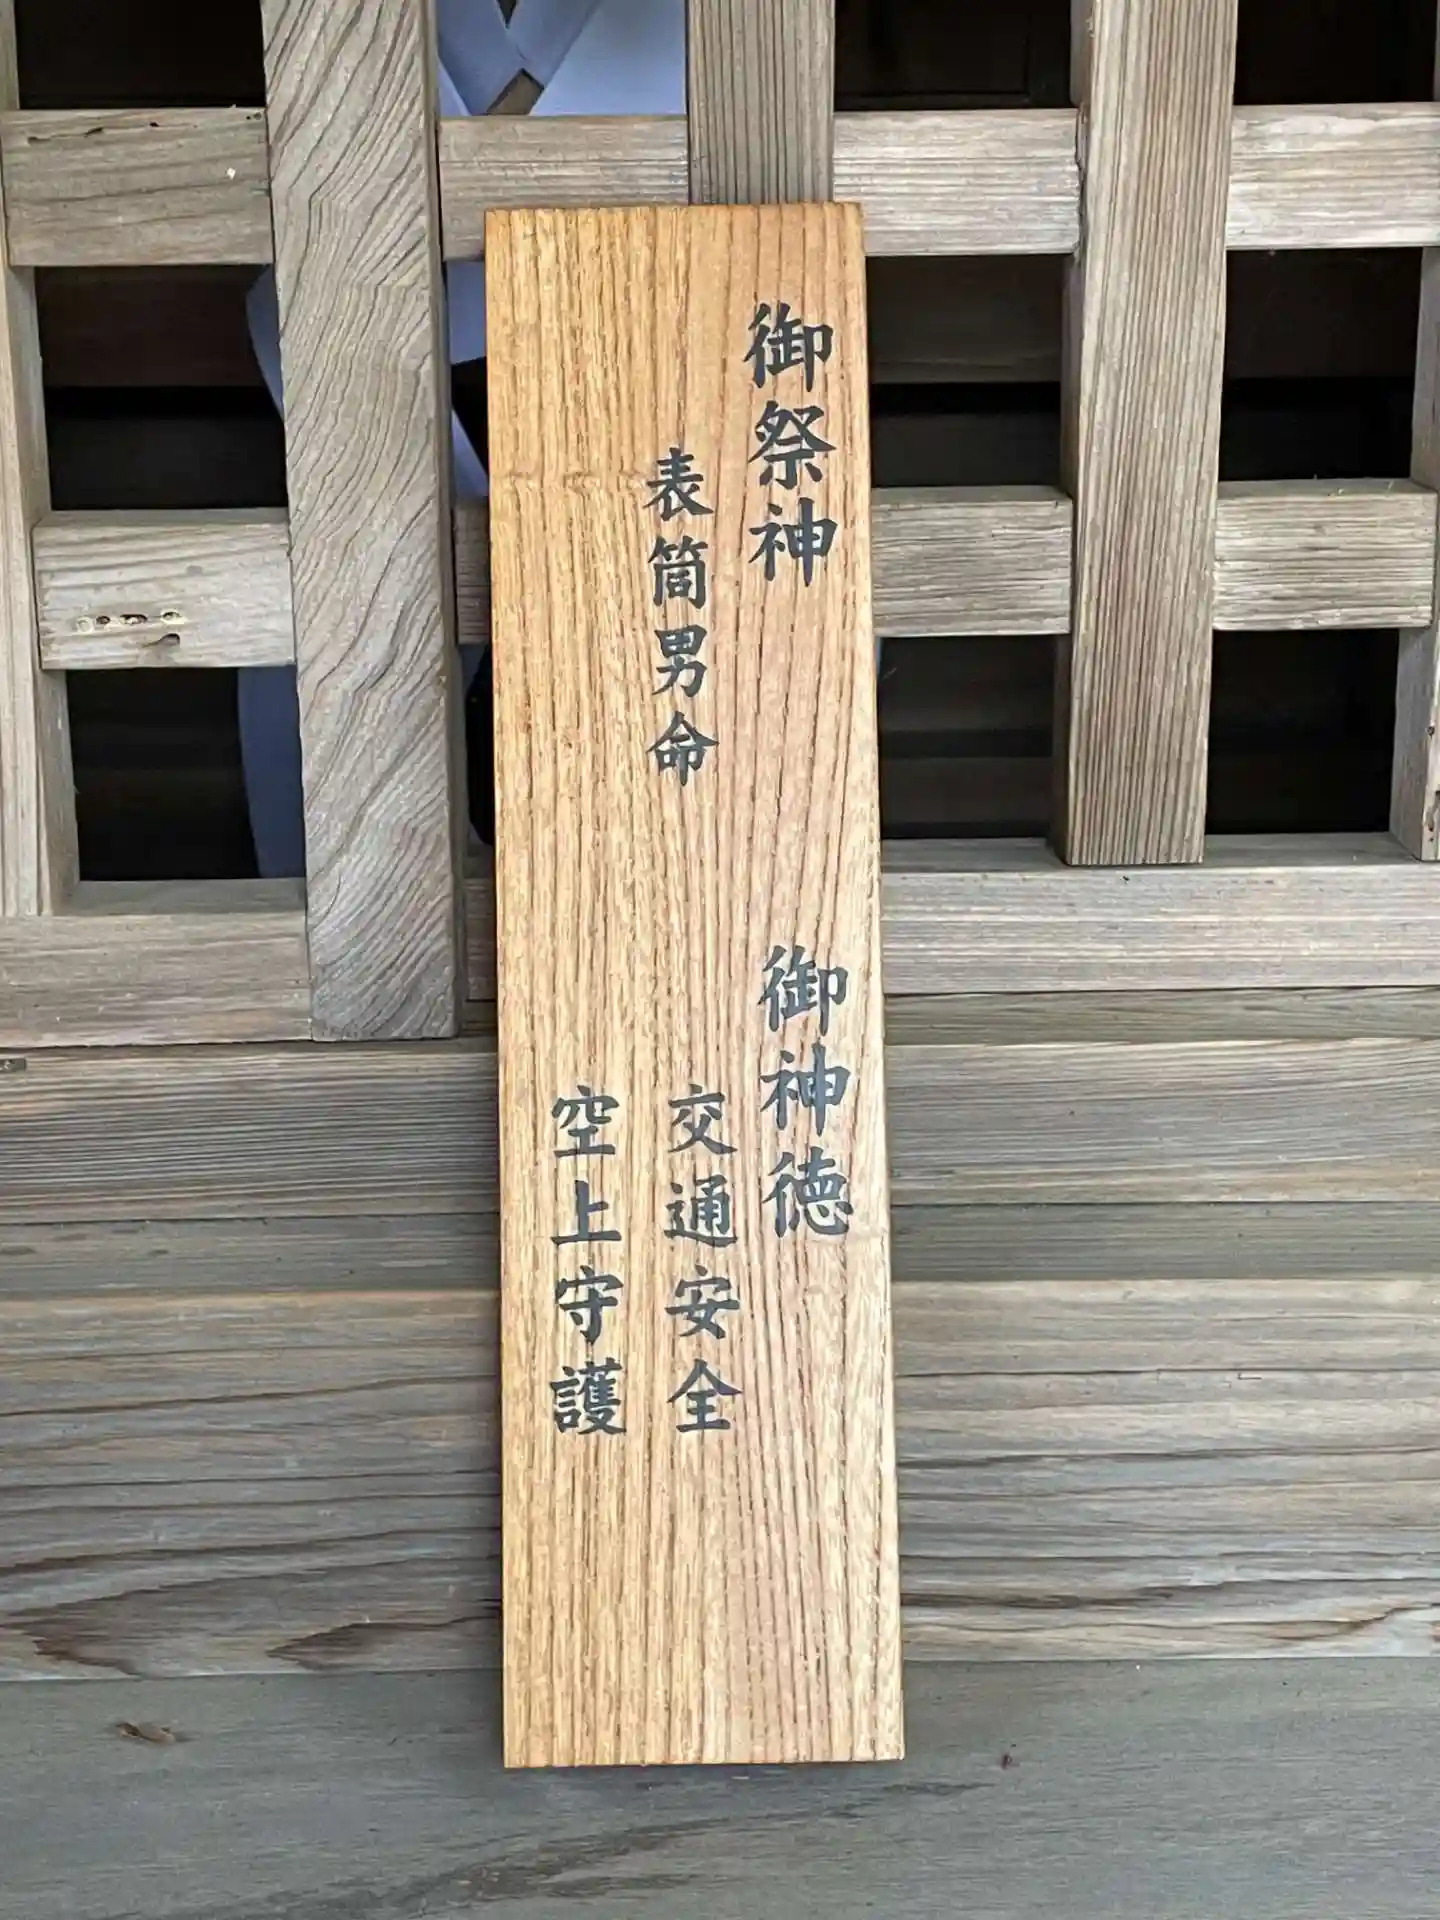 御祭神
表筒男命
御神徳
交通安全
空上守護